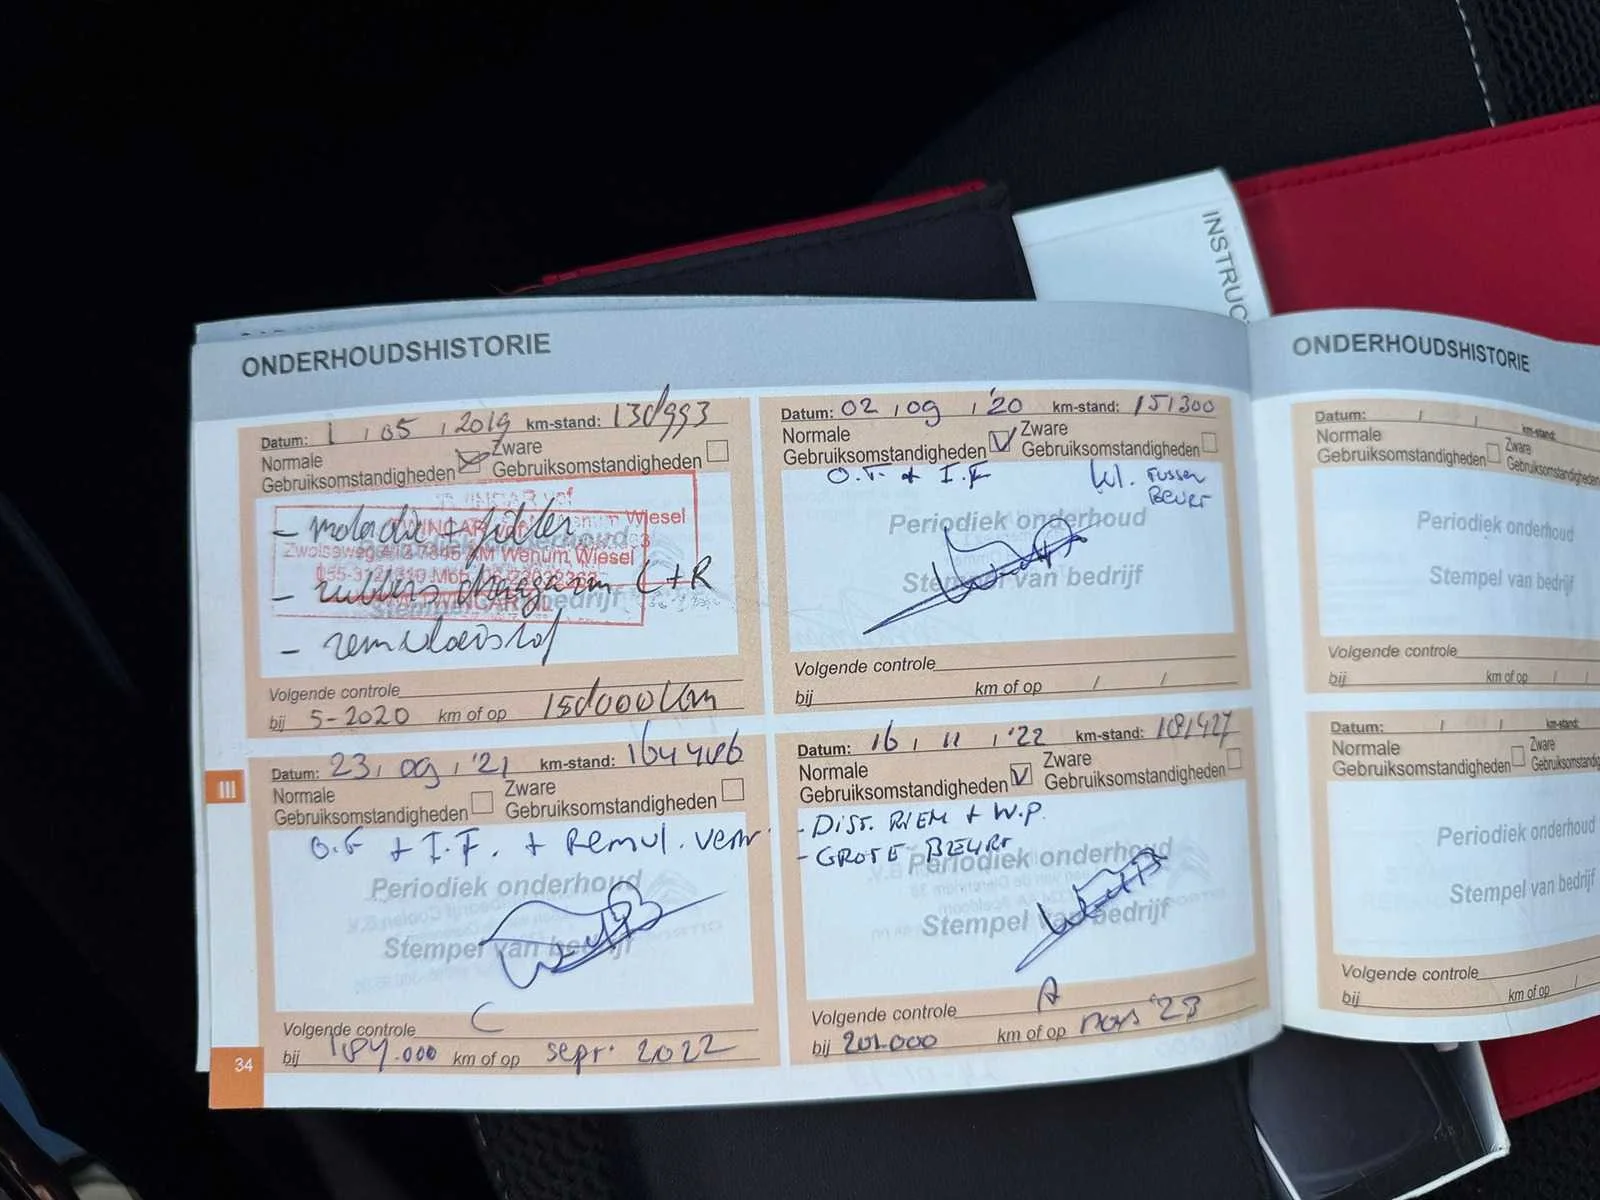 INSTRUC
ONDERHOUDSHISTORIE
Datum: 1 , 05 , 2019 km-stand: 130993
Normale
Gebruiksomstandigheden
Zware
Gebruiksomstandigheden
- motorolie + filter
Wenum Wiesel
Zwolseweg 412 7345 AM Wenum Wiesel
- rubbers draagarm L + R
Stempel van bedrijf
- remvloeistof
Volgende controle
bij 5-2020 km of op 150000 km
Datum: 02 , 09 , '20 km-stand: 151300
Normale
Gebruiksomstandigheden V
Zware
Gebruiksomstandigheden
O.F + I.F kl. Tussen
Beurt
Periodiek onderhoud
Stempel van bedrijf
Volgende controle
bij km of op / /
III
Datum: 23 , 09 , '21 km-stand:
Normale
Gebruiksomstandigheden
Zware
Gebruiksomstandigheden
O.F + I.F. + Remvl. verv.
Periodiek onderhoud
Stempel van bedrijf
Volgende controle C
bij 184.000 km of op sept. 2022
Datum: 16 , 11 , '22 km-stand: 181427
Normale
Gebruiksomstandigheden V
Zware
Gebruiksomstandigheden
- DIST. RIEM + W.P.
- GROTE BEURT
Periodiek onderhoud
Stempel van bedrijf
Volgende controle A
bij 201.000 km of op nov '23
34
ONDERHOUDSHISTORIE
Datum: / / km-stand:
Normale
Gebruiksomstandigheden
Zware
Gebruiksomstandigheden
Periodiek onderhoud
Stempel van bedrijf
Volgende controle
bij km of op / /
Datum: / / km-stand:
Normale
Gebruiksomstandigheden
Zware
Gebruiksomstandigheden
Periodiek onderhoud
Stempel van bedrijf
Volgende controle
bij km of op /